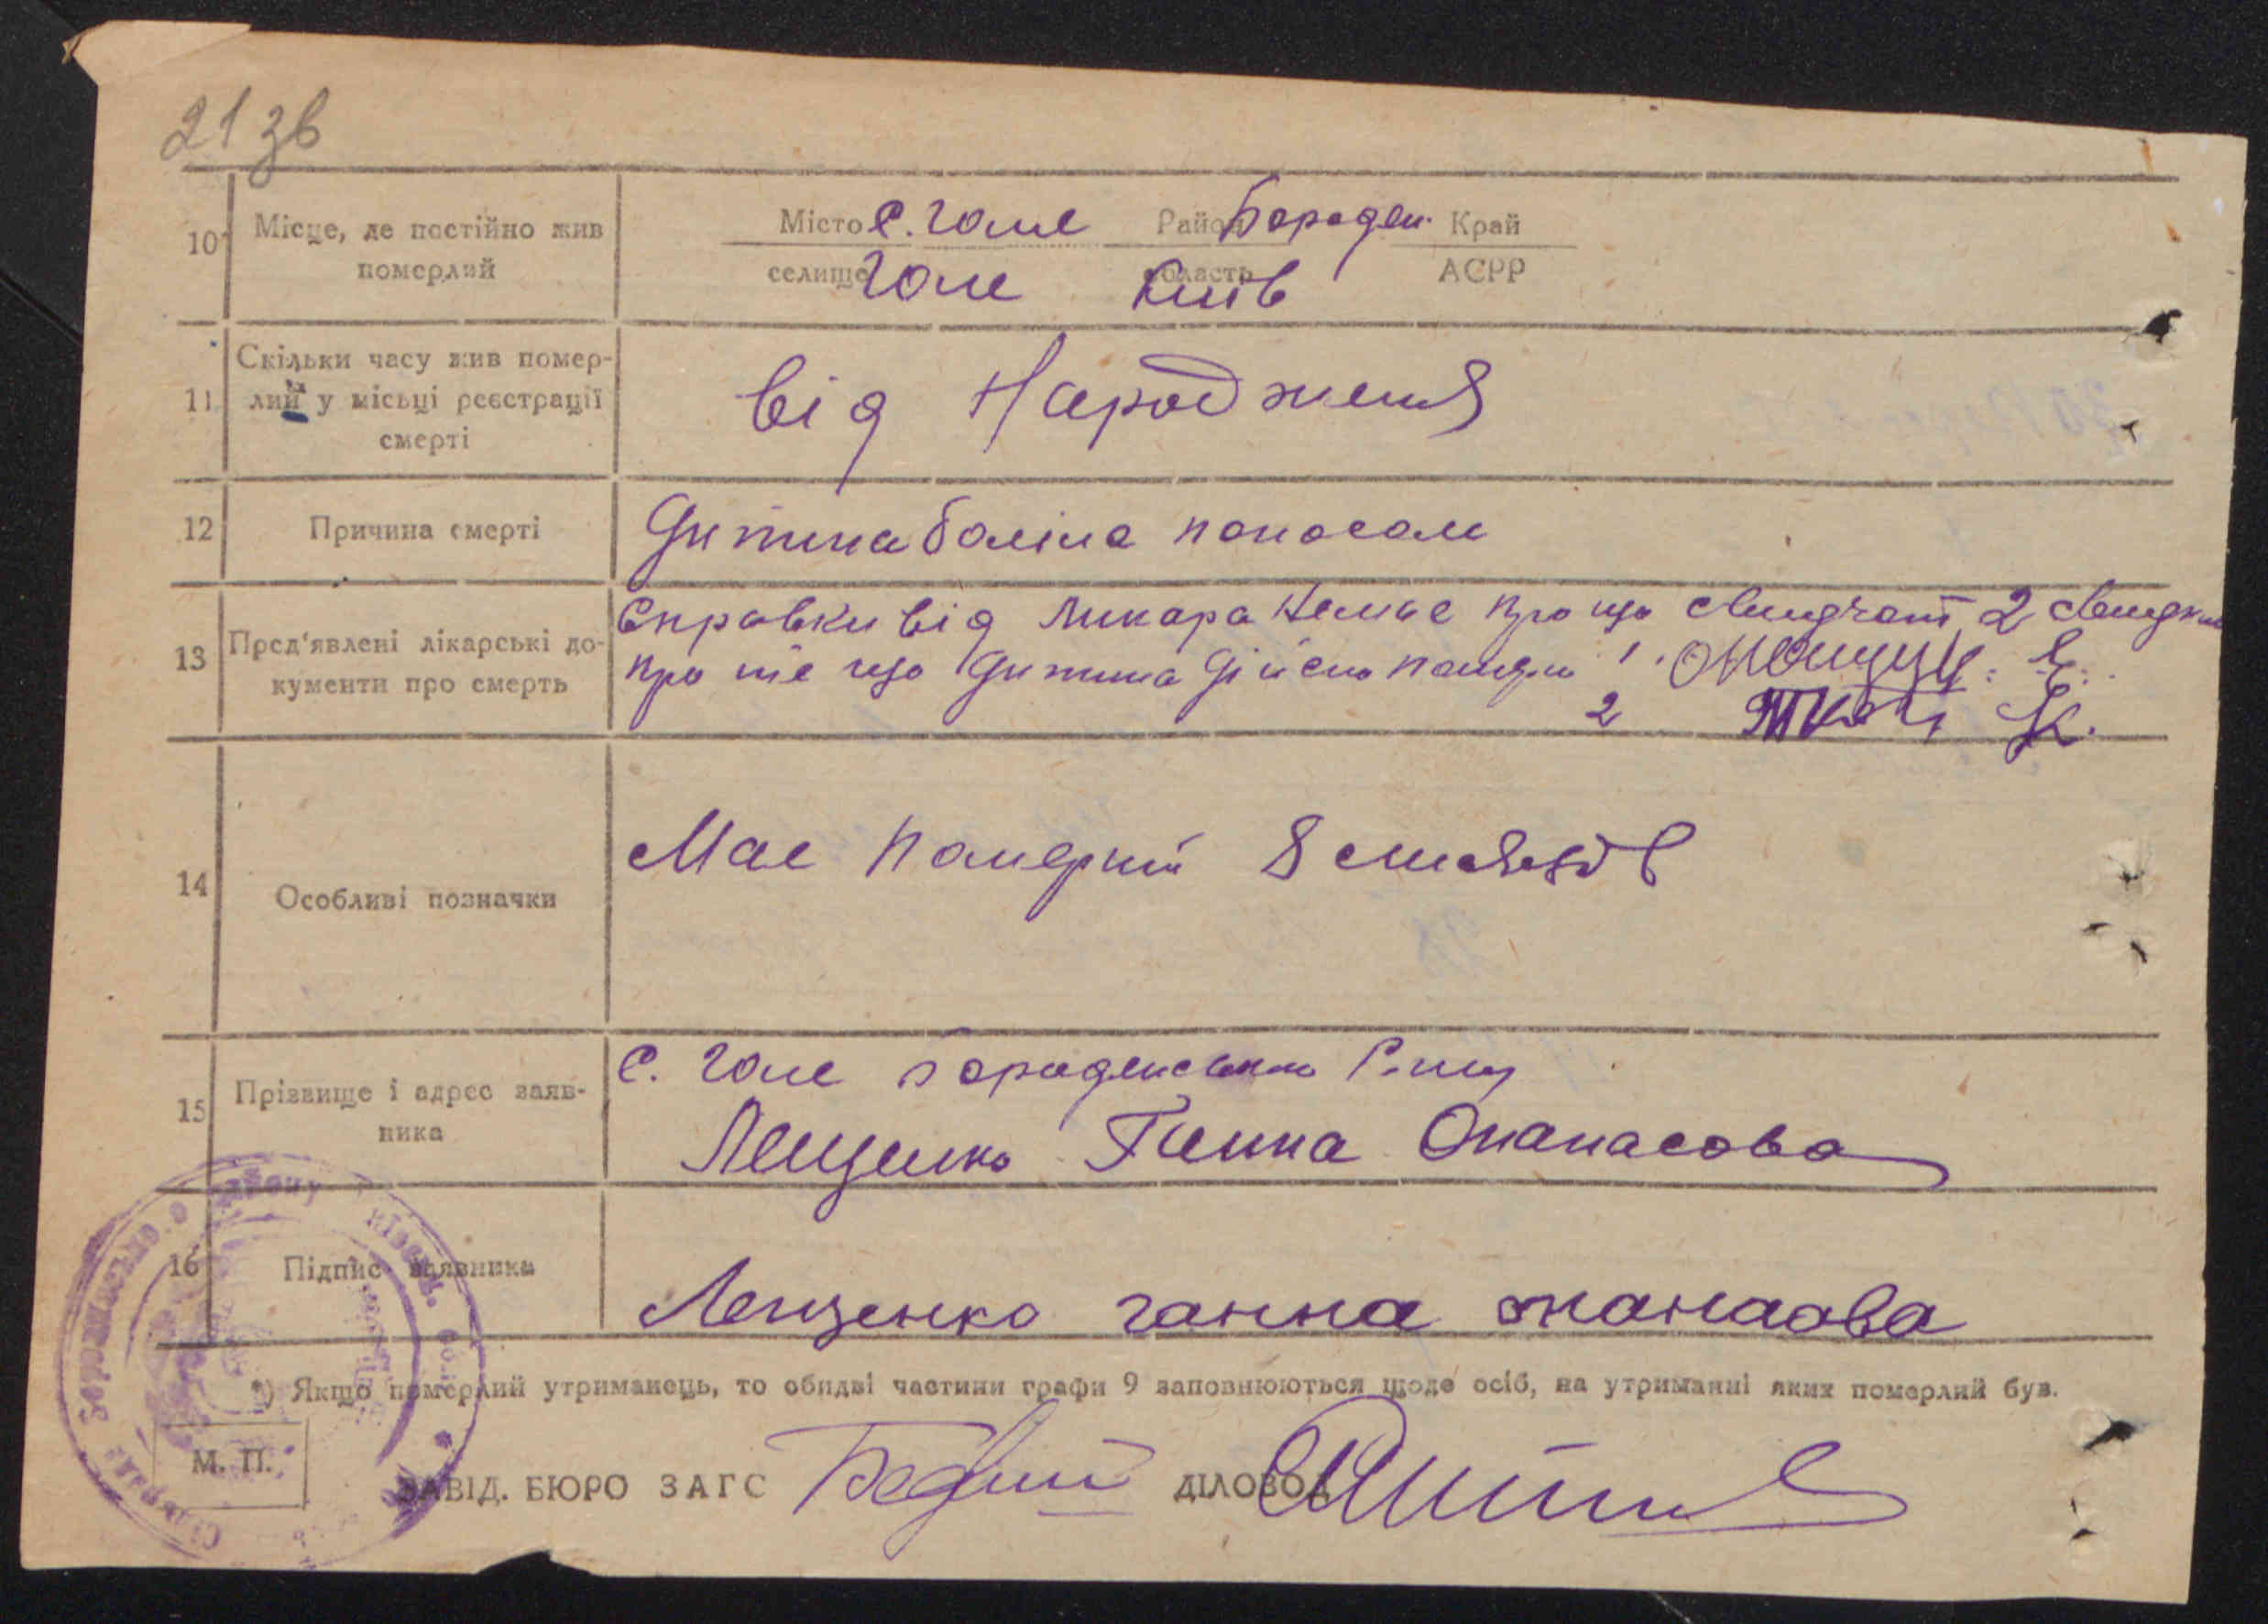 21 зв
10 Місце, де постійно жив померлий
Місто с. Голе Район Бороден. Край
селище Голе область Київ АСРР
11 Скільки часу жив помер-
лий у місьці реєстрації
смерті
від Народженя
12 Причина смерті
Дитина боліла поносом
13 Пред'явлені лікарські до-
кументи про смерть
Справки від Ликара Немає про що свидчат 2 свидки
про те що Дитина Дійсно 1.
2 К.
14 Особливі позначки
Має Померший 8
15 Прізвище і адрес заяв-
ника
с. Голе Бороденського
Лещенко Ганна Опанасова
16 Підпис заявника
Лещенко ганна
*) Якщо померлий утриманець, то обидві частини графи 9 заповнюються щодо осіб, на утриманні яких померлий був.
М. П.
ЗАВІД. БЮРО ЗАГС ДІЛОВОД